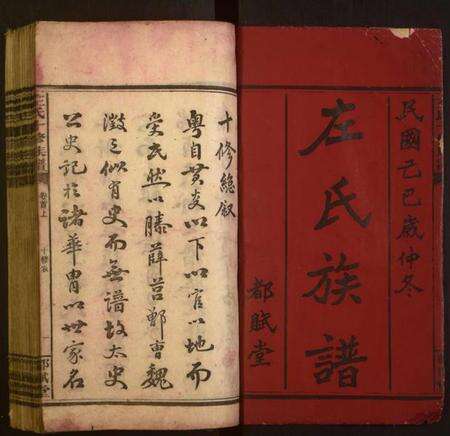 民國己巳歲仲冬
左氏族譜
都賦堂
十修總叙
粵自黃炎以下以官以地而
受氏然以滕薛莒鄭曹魏
徵之似有史而無譜故太史
公史記於諸華胄以世家名
卷首上
都賦堂